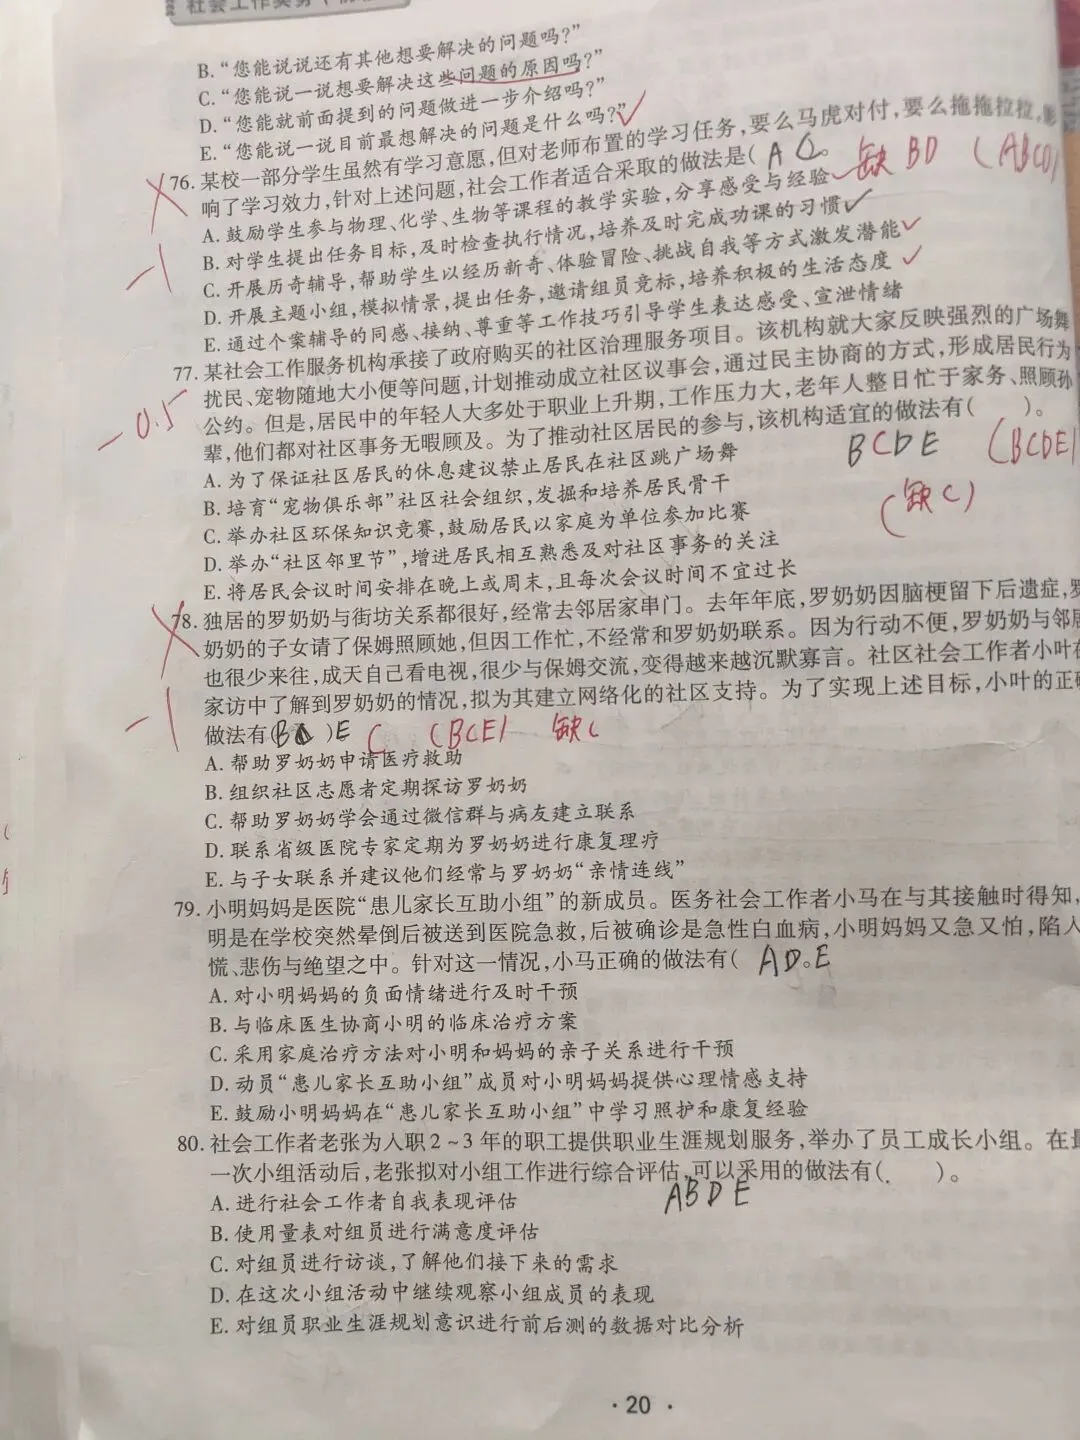 社会工作实务
B. “您能说说还有其他想要解决的问题吗?”
C. “您能说一说想要解决这些问题的原因吗?”
D. “您能就前面提到的问题做进一步介绍吗?”
E. “您能说一说目前最想解决的问题是什么吗?”
76. 某校一部分学生虽然有学习意愿,但对老师布置的学习任务,要么马虎对付,要么拖拖拉拉,影
响了学习效力,针对上述问题,社会工作者适合采取的做法是( AC 。 缺 BD (ABCD)
A. 鼓励学生参与物理、化学、生物等课程的教学实验,分享感受与经验
B. 对学生提出任务目标,及时检查执行情况,培养及时完成功课的习惯
C. 开展历奇辅导,帮助学生以经历新奇、体验冒险、挑战自我等方式激发潜能
D. 开展主题小组,模拟情景,提出任务,邀请组员竞标,培养积极的生活态度
E. 通过个案辅导的同感、接纳、尊重等工作技巧引导学生表达感受、宣泄情绪
-1
77. 某社会工作服务机构承接了政府购买的社区治理服务项目。该机构就大家反映强烈的广场舞
扰民、宠物随地大小便等问题,计划推动成立社区议事会,通过民主协商的方式,形成居民行为
公约。但是,居民中的年轻人大多处于职业上升期,工作压力大,老年人整日忙于家务、照顾孙
辈,他们都对社区事务无暇顾及。为了推动社区居民的参与,该机构适宜的做法有( )。
-0.5
BCDE (BCDE)
A. 为了保证社区居民的休息建议禁止居民在社区跳广场舞
B. 培育“宠物俱乐部”社区社会组织,发掘和培养居民骨干
(缺C)
C. 举办社区环保知识竞赛,鼓励居民以家庭为单位参加比赛
D. 举办“社区邻里节”,增进居民相互熟悉及对社区事务的关注
E. 将居民会议时间安排在晚上或周末,且每次会议时间不宜过长
78. 独居的罗奶奶与街坊关系都很好,经常去邻居家串门。去年年底,罗奶奶因脑梗留下后遗症,罗
奶奶的子女请了保姆照顾她,但因工作忙,不经常和罗奶奶联系。因为行动不便,罗奶奶与邻居
也很少来往,成天自己看电视,很少与保姆交流,变得越来越沉默寡言。社区社会工作者小叶在
家访中了解到罗奶奶的情况,拟为其建立网络化的社区支持。为了实现上述目标,小叶的正确
-1
做法有(B )E C (BCE) 缺C
A. 帮助罗奶奶申请医疗救助
B. 组织社区志愿者定期探访罗奶奶
C. 帮助罗奶奶学会通过微信群与病友建立联系
D. 联系省级医院专家定期为罗奶奶进行康复理疗
E. 与子女联系并建议他们经常与罗奶奶“亲情连线”
79. 小明妈妈是医院“患儿家长互助小组”的新成员。医务社会工作者小马在与其接触时得知,
明是在学校突然晕倒后被送到医院急救,后被确诊是急性白血病,小明妈妈又急又怕,陷入
慌、悲伤与绝望之中。针对这一情况,小马正确的做法有( AD。E
A. 对小明妈妈的负面情绪进行及时干预
B. 与临床医生协商小明的临床治疗方案
C. 采用家庭治疗方法对小明和妈妈的亲子关系进行干预
D. 动员“患儿家长互助小组”成员对小明妈妈提供心理情感支持
E. 鼓励小明妈妈在“患儿家长互助小组”中学习照护和康复经验
80. 社会工作者老张为入职2~3年的职工提供职业生涯规划服务,举办了员工成长小组。在最
一次小组活动后,老张拟对小组工作进行综合评估,可以采用的做法有( )。
ABDE
A. 进行社会工作者自我表现评估
B. 使用量表对组员进行满意度评估
C. 对组员进行访谈,了解他们接下来的需求
D. 在这次小组活动中继续观察小组成员的表现
E. 对组员职业生涯规划意识进行前后测的数据对比分析
· 20 ·